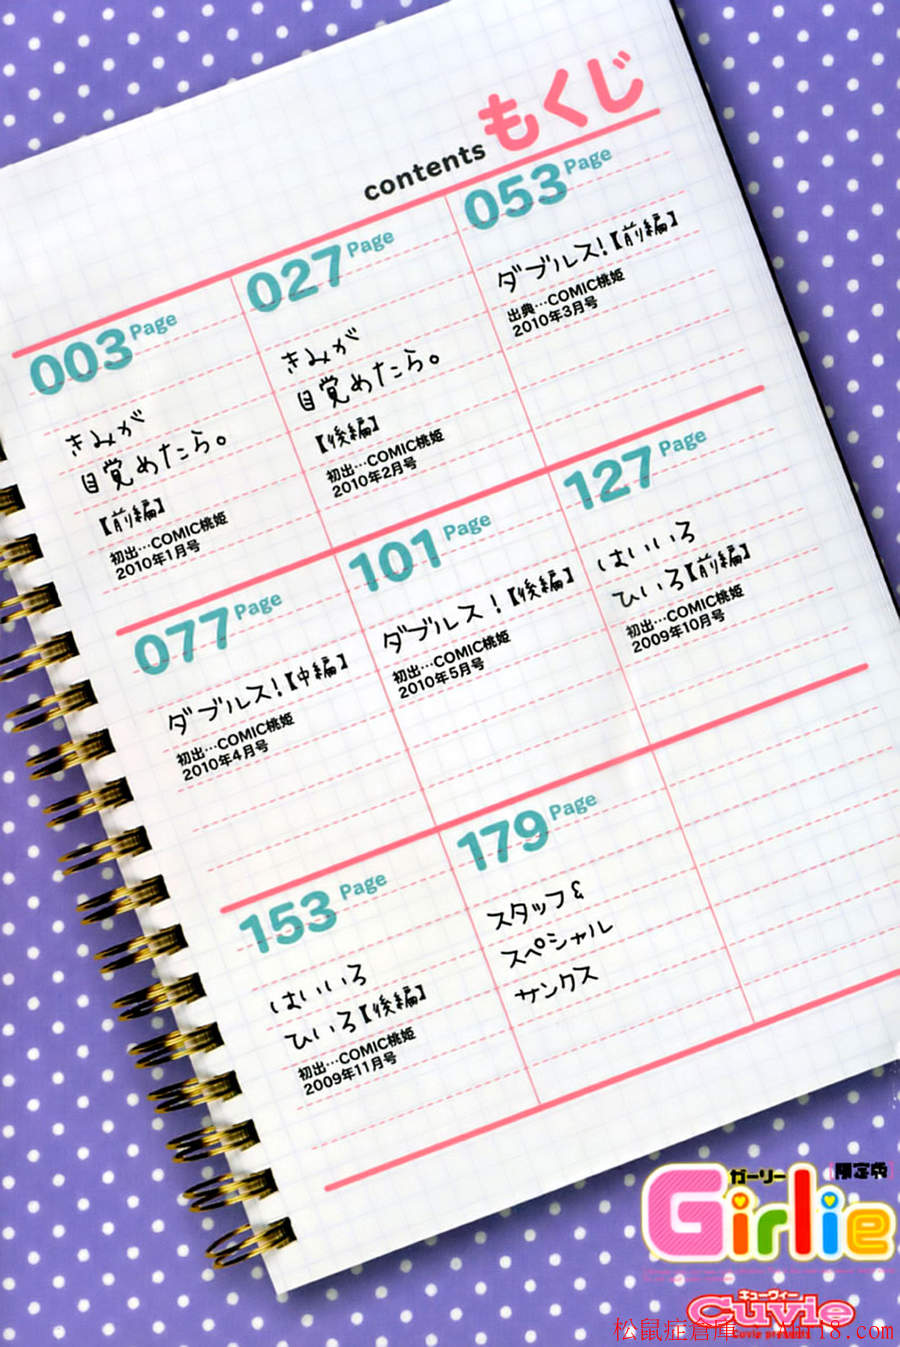 もくじ
contents
003 Page
きみが
目覚めたら。
【前編】
初出…COMIC桃姫
2010年1月号
027 Page
きみが
目覚めたら。
【後編】
初出…COMIC桃姫
2010年2月号
053 Page
ダブルス!【前編】
出典…COMIC桃姫
2010年3月号
077 Page
ダブルス!【中編】
初出…COMIC桃姫
2010年4月号
101 Page
ダブルス!【後編】
初出…COMIC桃姫
2010年5月号
127 Page
はいいろ
ひいろ【前編】
初出…COMIC桃姫
2009年10月号
153 Page
はいいろ
ひいろ【後編】
初出…COMIC桃姫
2009年11月号
179 Page
スタッフ&
スペシャル
サンクス
ガーリー
限定版
Girlie
キューヴィー
Cuvie
Cuvie presents
松鼠症倉庫